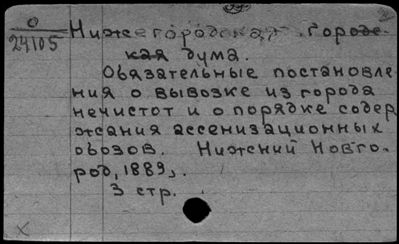 0
24105
Нижегородская городс-
кая дума.
Обязательные постановле-
ния о вывозке из города
нечистот и о порядке содер
жания ассенизационных
обозов. Нижний Новго-
род, 1889,.
3 стр.